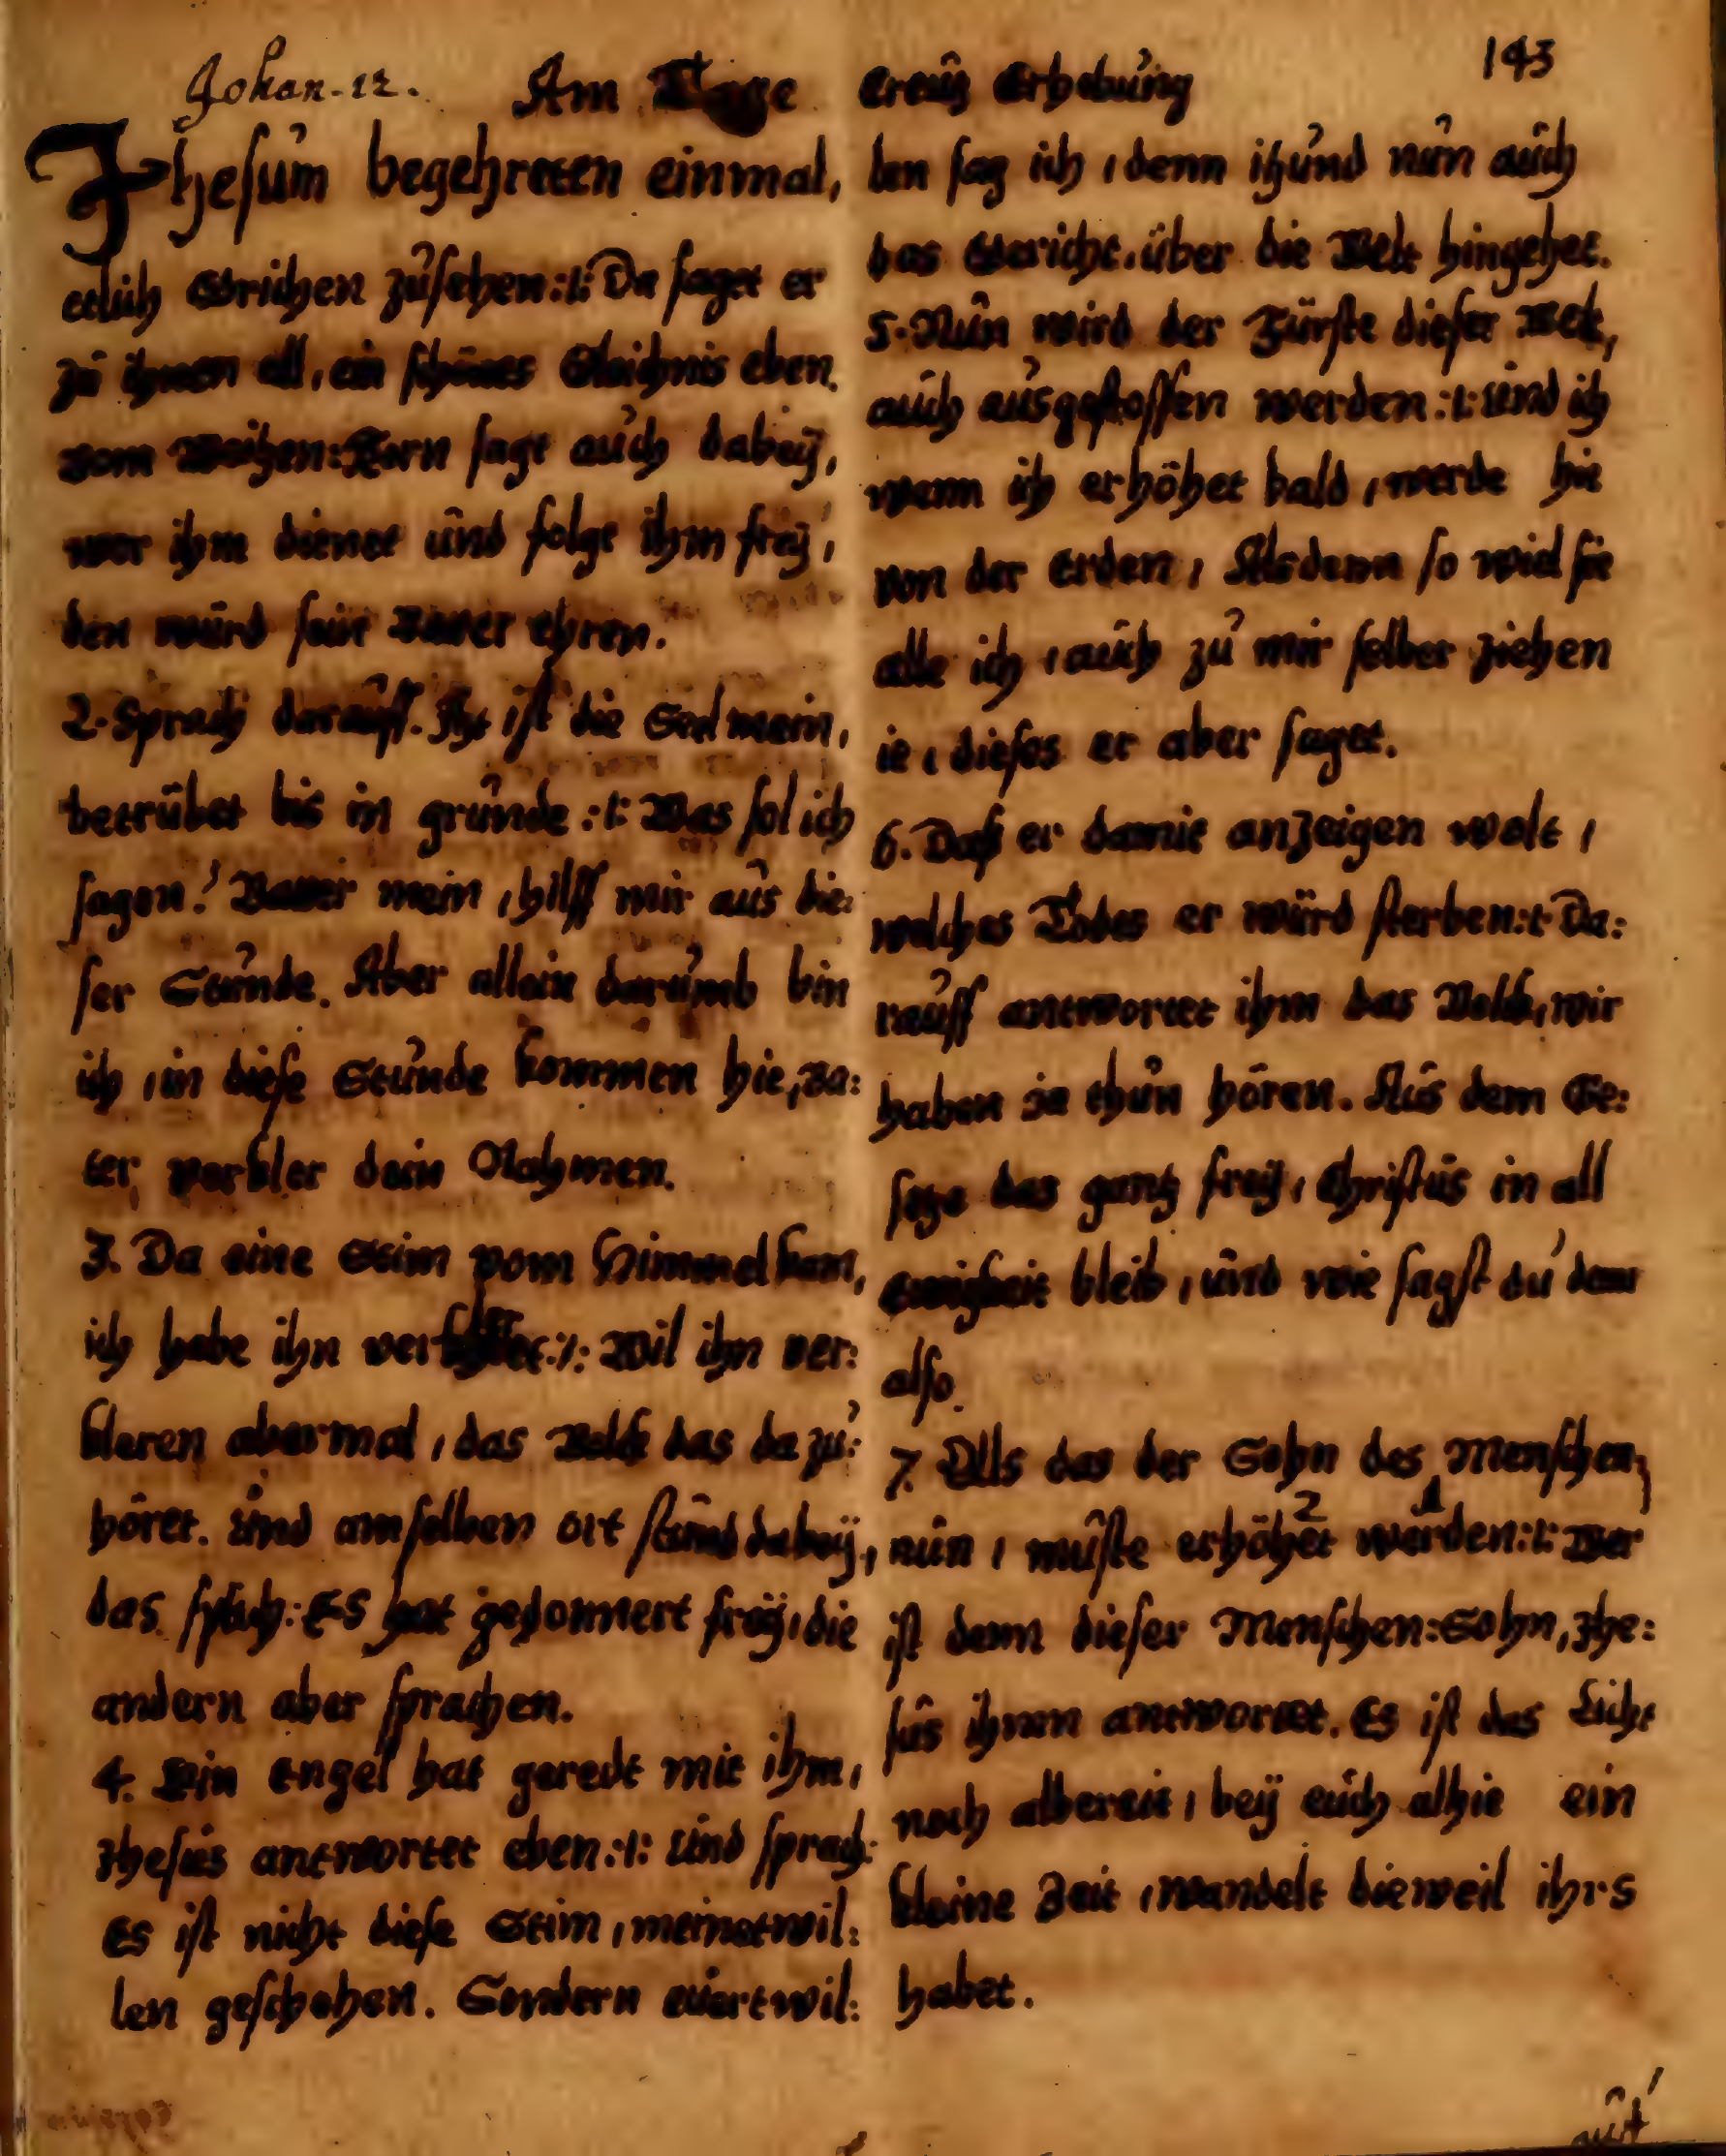 Johan. 12. Am Tage Creütz Erhebung 143
Jhesum begehreten einmal,
etlich Grichen zusehen :t: Da saget er
zu ihnen all, ein schönes Gleichnis eben,
vom Weitzen:Korn sagt auch dabeÿ,
wer ihm dienet und folgt ihm freÿ,
den würd sein Vater ehren.
2. Sprach darauff. Itzt ist die Seel mein,
betrübet bis in grunde :t: Was sol ich
sagen? Vater mein, hilff mir aus die:
ser Stunde. Aber allein darumb bin
ich, in diese Stunde kommen hie, Va:
ter verkler dein Nahmen.
3. Da eine Stim vom Himmel kam,
ich habe ihn verkleret :/: Wil ihn ver:
kleren abermal, das Volck das da zu:
höret. Und am selben ort stund dabeÿ,
das sprach: Es hat gedonnert freÿ, die
andern aber sprachen.
4. Ein Engel hat geredt mit ihm,
Jhesus antwortet eben :t: Und sprach:
Es ist nicht diese Stim, meinetwil:
len geschehen. Sondern euertwil:
len sag ich, denn itzund nun auch
das Gericht, über die Welt hingehet.
5. Nun wird der Fürste dieser Welt,
auch ausgestossen werden :t: Und ich
wenn ich erhöhet bald, werde hie
von der Erden, Alsdenn so wiel sie
alle ich, auch zu mir selber ziehen
ie, dieses er aber saget.
6. Daß er damit anzeigen wolt,
welches Todes er würd sterben :t: Da:
rauff antwortet ihm das Volck, wir
haben ja thun hören. Aus dem Ge:
setze das gantz freÿ, Christus in all
ewigkeit bleib, und wie sagst du denn
also.
7. Als das der Sohn des Menschen,
nun, muste erhöhet 2 werden 1 :t: Wer
ist denn dieser Menschen:Sohn, Jhe:
sus ihnen antwortet. Es ist das Licht
noch albereit, beÿ euch alhie ein
kleine Zeit, wandelt dieweil ihrs
habet.